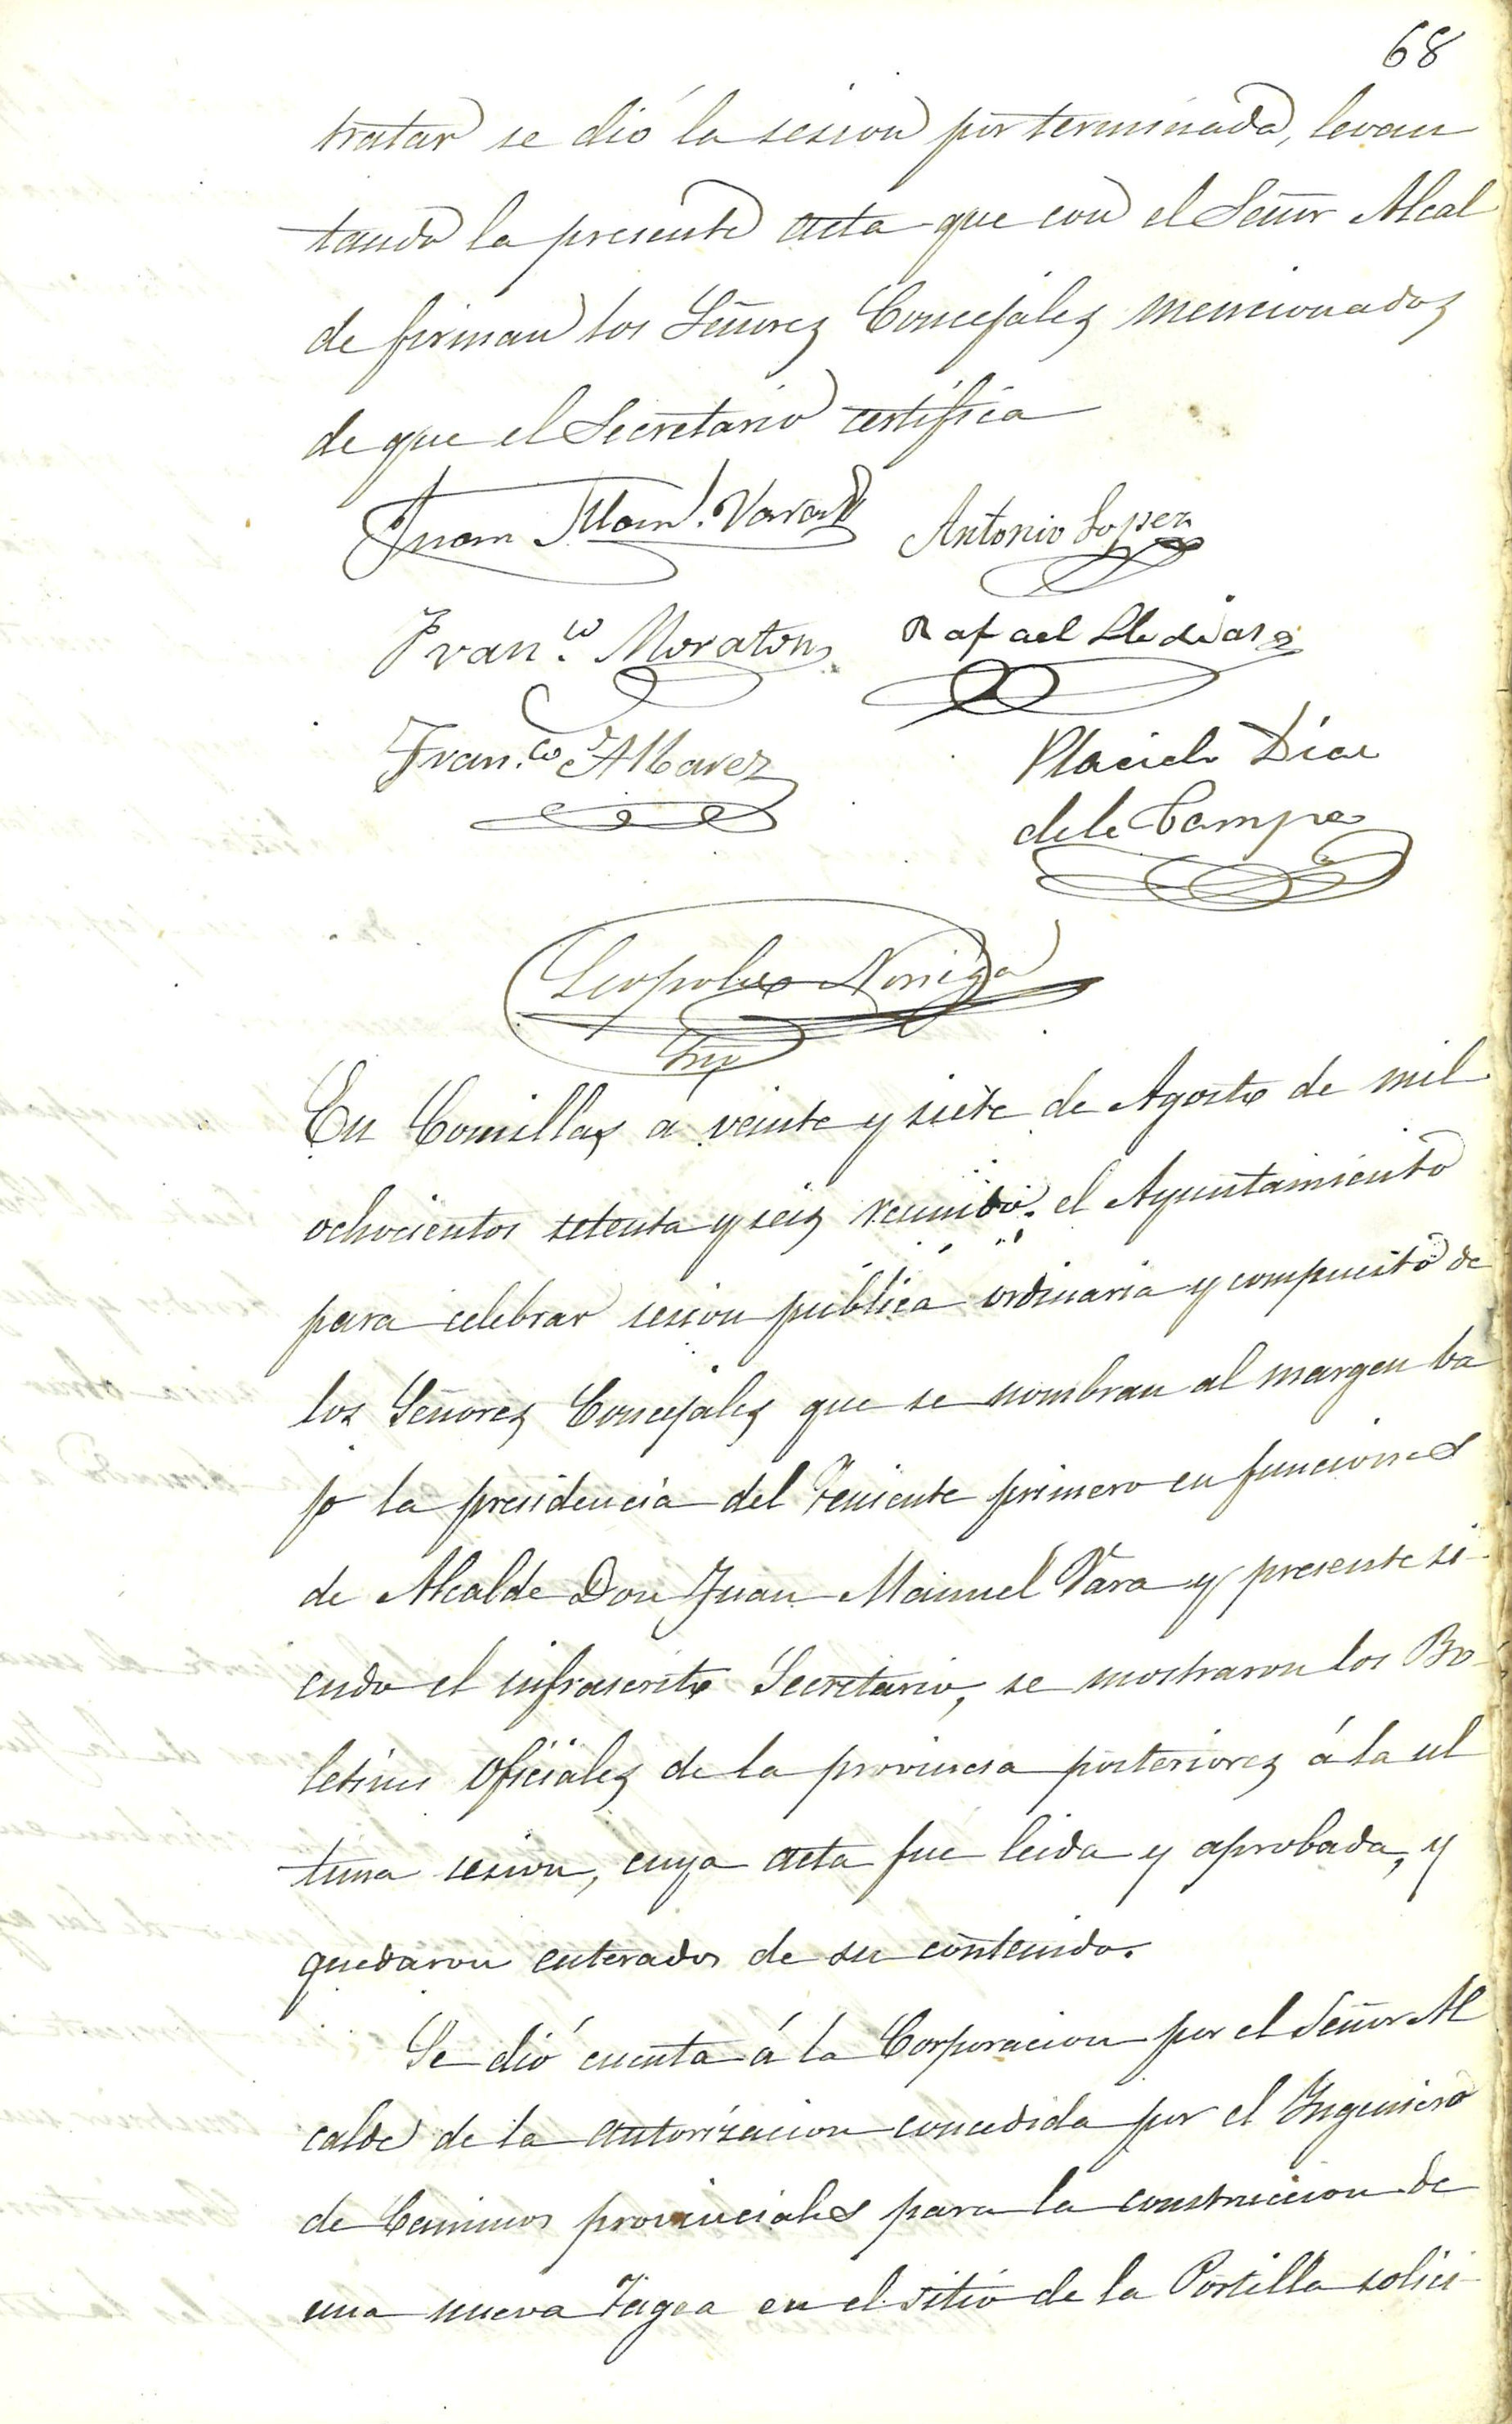 68
tratar se dió la sesion por terminada, levan
tando la presente acta que con el Señor Alcal
de firman los Señores Concejales mencionados
de que el Secretario certifica
Juan Man.l Vara
Antonio Lopez
Fran.co Moraton
Rafael
Fran.co Alvarez
Placido Díaz
de la Campa
Leopoldo Noriega
Srio
En Comillas á veinte y siete de Agosto de mil
ochocientos setenta y seis reunido el Ayuntamiento
para celebrar sesion pública ordinaria y compuesto de
los Señores Concejales que se nombran al margen ba
jo la presidencia del Teniente primero en funciones
de Alcalde Don Juan Manuel Vara y presente si-
endo el infrascrito Secretario, se mostraron los Bo-
letines oficiales de la provincia posteriores á la ul
tima sesion, cuya acta fue leida y aprobada, y
quedaron enterados de su contenido.
Se dió cuenta á la Corporacion por el Señor Al
calde de la autorizacion concedida por el Ingeniero
de Caminos provinciales para la construccion de
una nueva Tagea en el sitio de la Portilla solici-